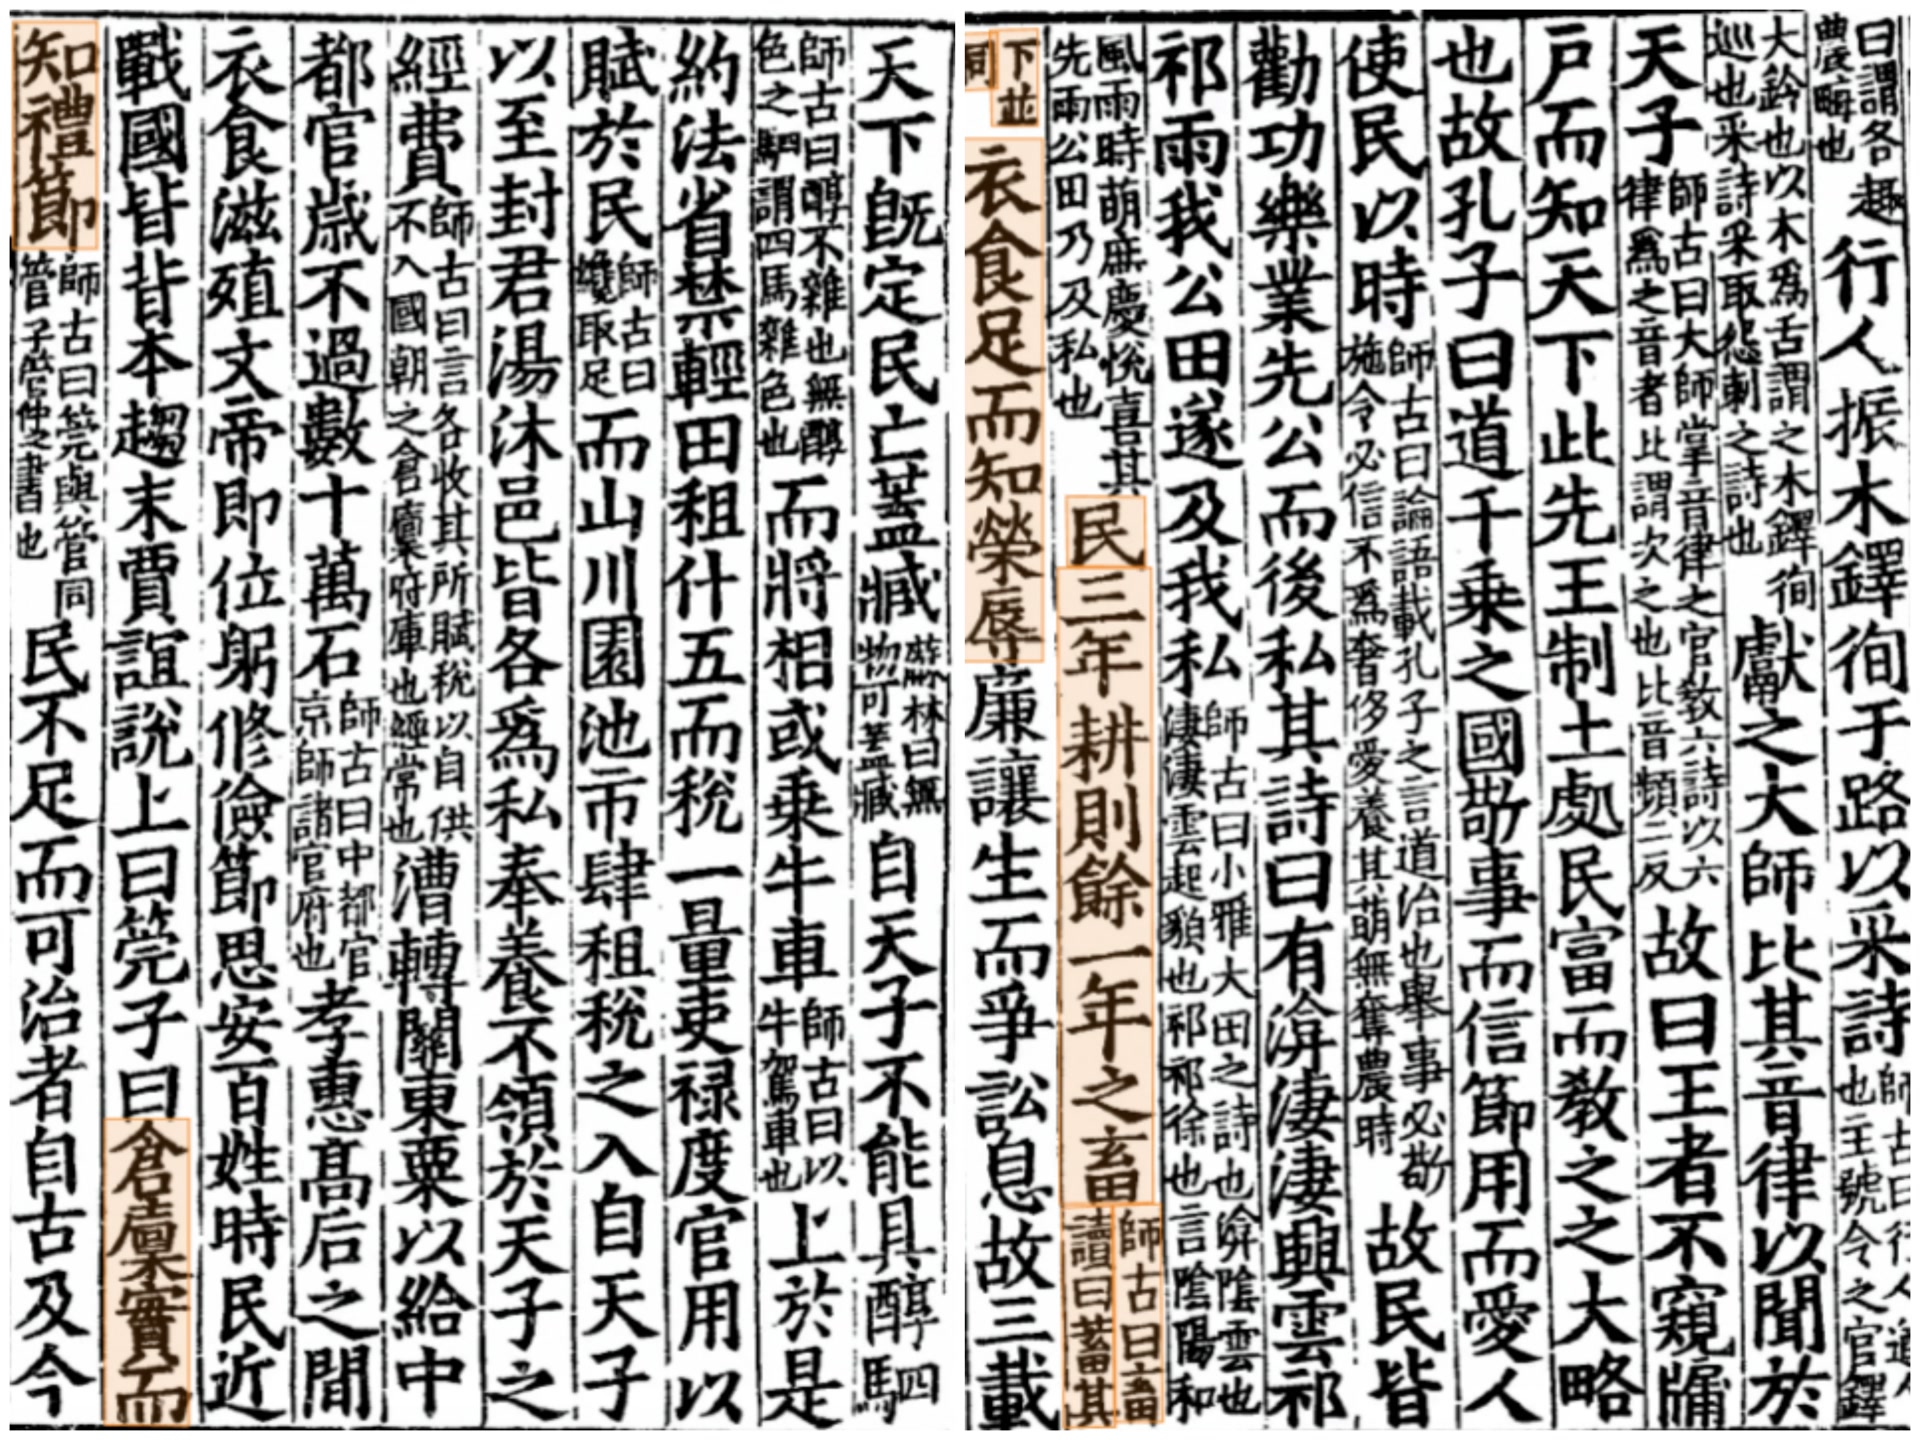 曰謂各趣農畮也行人振木鐸徇于路以采詩師古曰行人遒人也主號令之官鐸
大鈴也以木爲舌謂之木鐸徇巡也采詩采取怨刺之詩也獻之大師比其音律以聞於
天子師古曰大師掌音律之官敎六詩以六律爲之音者比謂次之也比音頻二反故曰王者不窺牖
戸而知天下此先王制土處民富而敎之之大略
也故孔子曰道千乗之國敬事而信節用而愛人
使民以時師古曰論語載孔子之言道治也舉事必敬施令必信不爲奢侈愛養其萌無奪農時故民皆
勸功樂業先公而後私其詩曰有渰淒淒興雲祁
祁雨我公田遂及我私師古曰小雅大田之詩也渰陰雲也淒淒雲起貌也祁祁徐也言陰陽和
風雨時萌庶慶恱喜其先雨公田乃及私也民三年耕則餘一年之畜師古曰畜讀曰蓄其
下並同衣食足而知榮辱廉讓生而爭訟息故三載
天下旣定民亡蓋臧蘇林曰無物可蓋臧自天子不能具醇駟
師古曰醇不雜也無醇色之駟謂四馬雜色也而將相或乗牛車師古曰以牛駕車也上於是
約法省禁輕田租什五而稅一量吏禄度官用以
賦於民師古曰纔取足而山川園池市肆租稅之入自天子
以至封君湯沐邑皆各爲私奉養不領於天子之
經費師古曰言各收其所賦稅以自供不入國朝之倉廩府庫也經常也漕轉關東粟以給中
都官歲不過數十萬石師古曰中都官京師諸官府也孝惠髙后之間
衣食滋殖文帝即位躬修儉節思安百姓時民近
戰國皆背本趨末賈誼說上曰筦子曰倉廩實而
知禮節師古曰筦與管同管子管仲之書也民不足而可治者自古及今